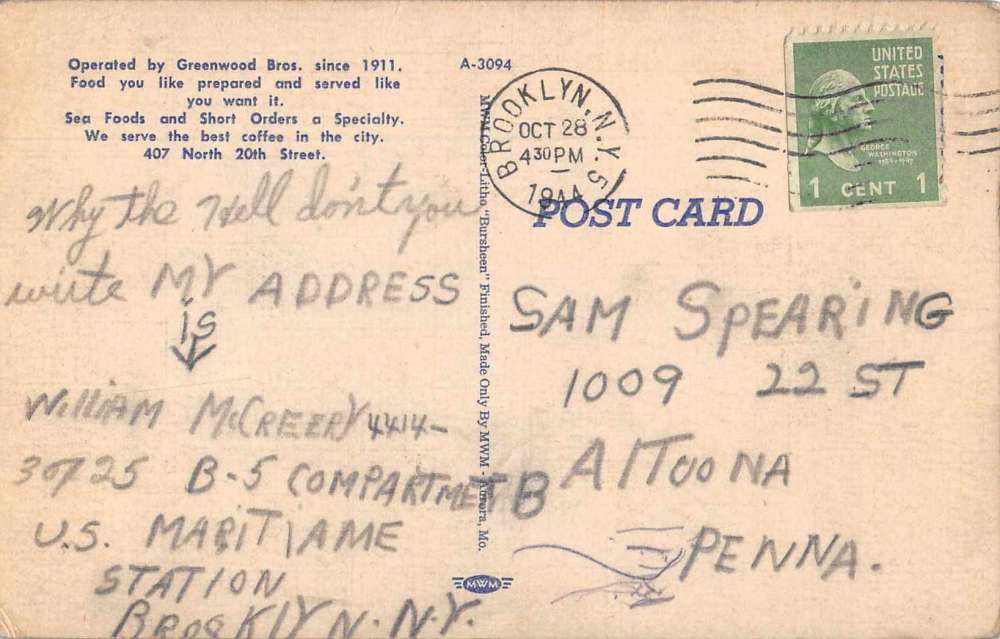 Operated by Greenwood Bros. since 1911.
Food you like prepared and served like
you want it.
Sea Foods and Short Orders a Specialty.
We serve the best coffee in the city.
407 North 20th Street.
A-3094
MWM Color-Litho "Bursheen" Finished, Made Only By MWM - Aurora, Mo.
BROOKLYN, N.Y. 5
OCT 28
430 PM
1944
UNITED
STATES
POSTAGE
GEORGE
WASHINGTON
1789-1797
1 CENT 1
POST CARD
Why the Hell don't you
write MY ADDRESS
is
William McCREERY 4414-
30725 B-5 COMPARTMETB
U.S. MARITIAME
STATION
BROOKLYN. N.Y.
SAM SPEARiNG
1009 22 ST
AlTooNA
PENNA.
MWM